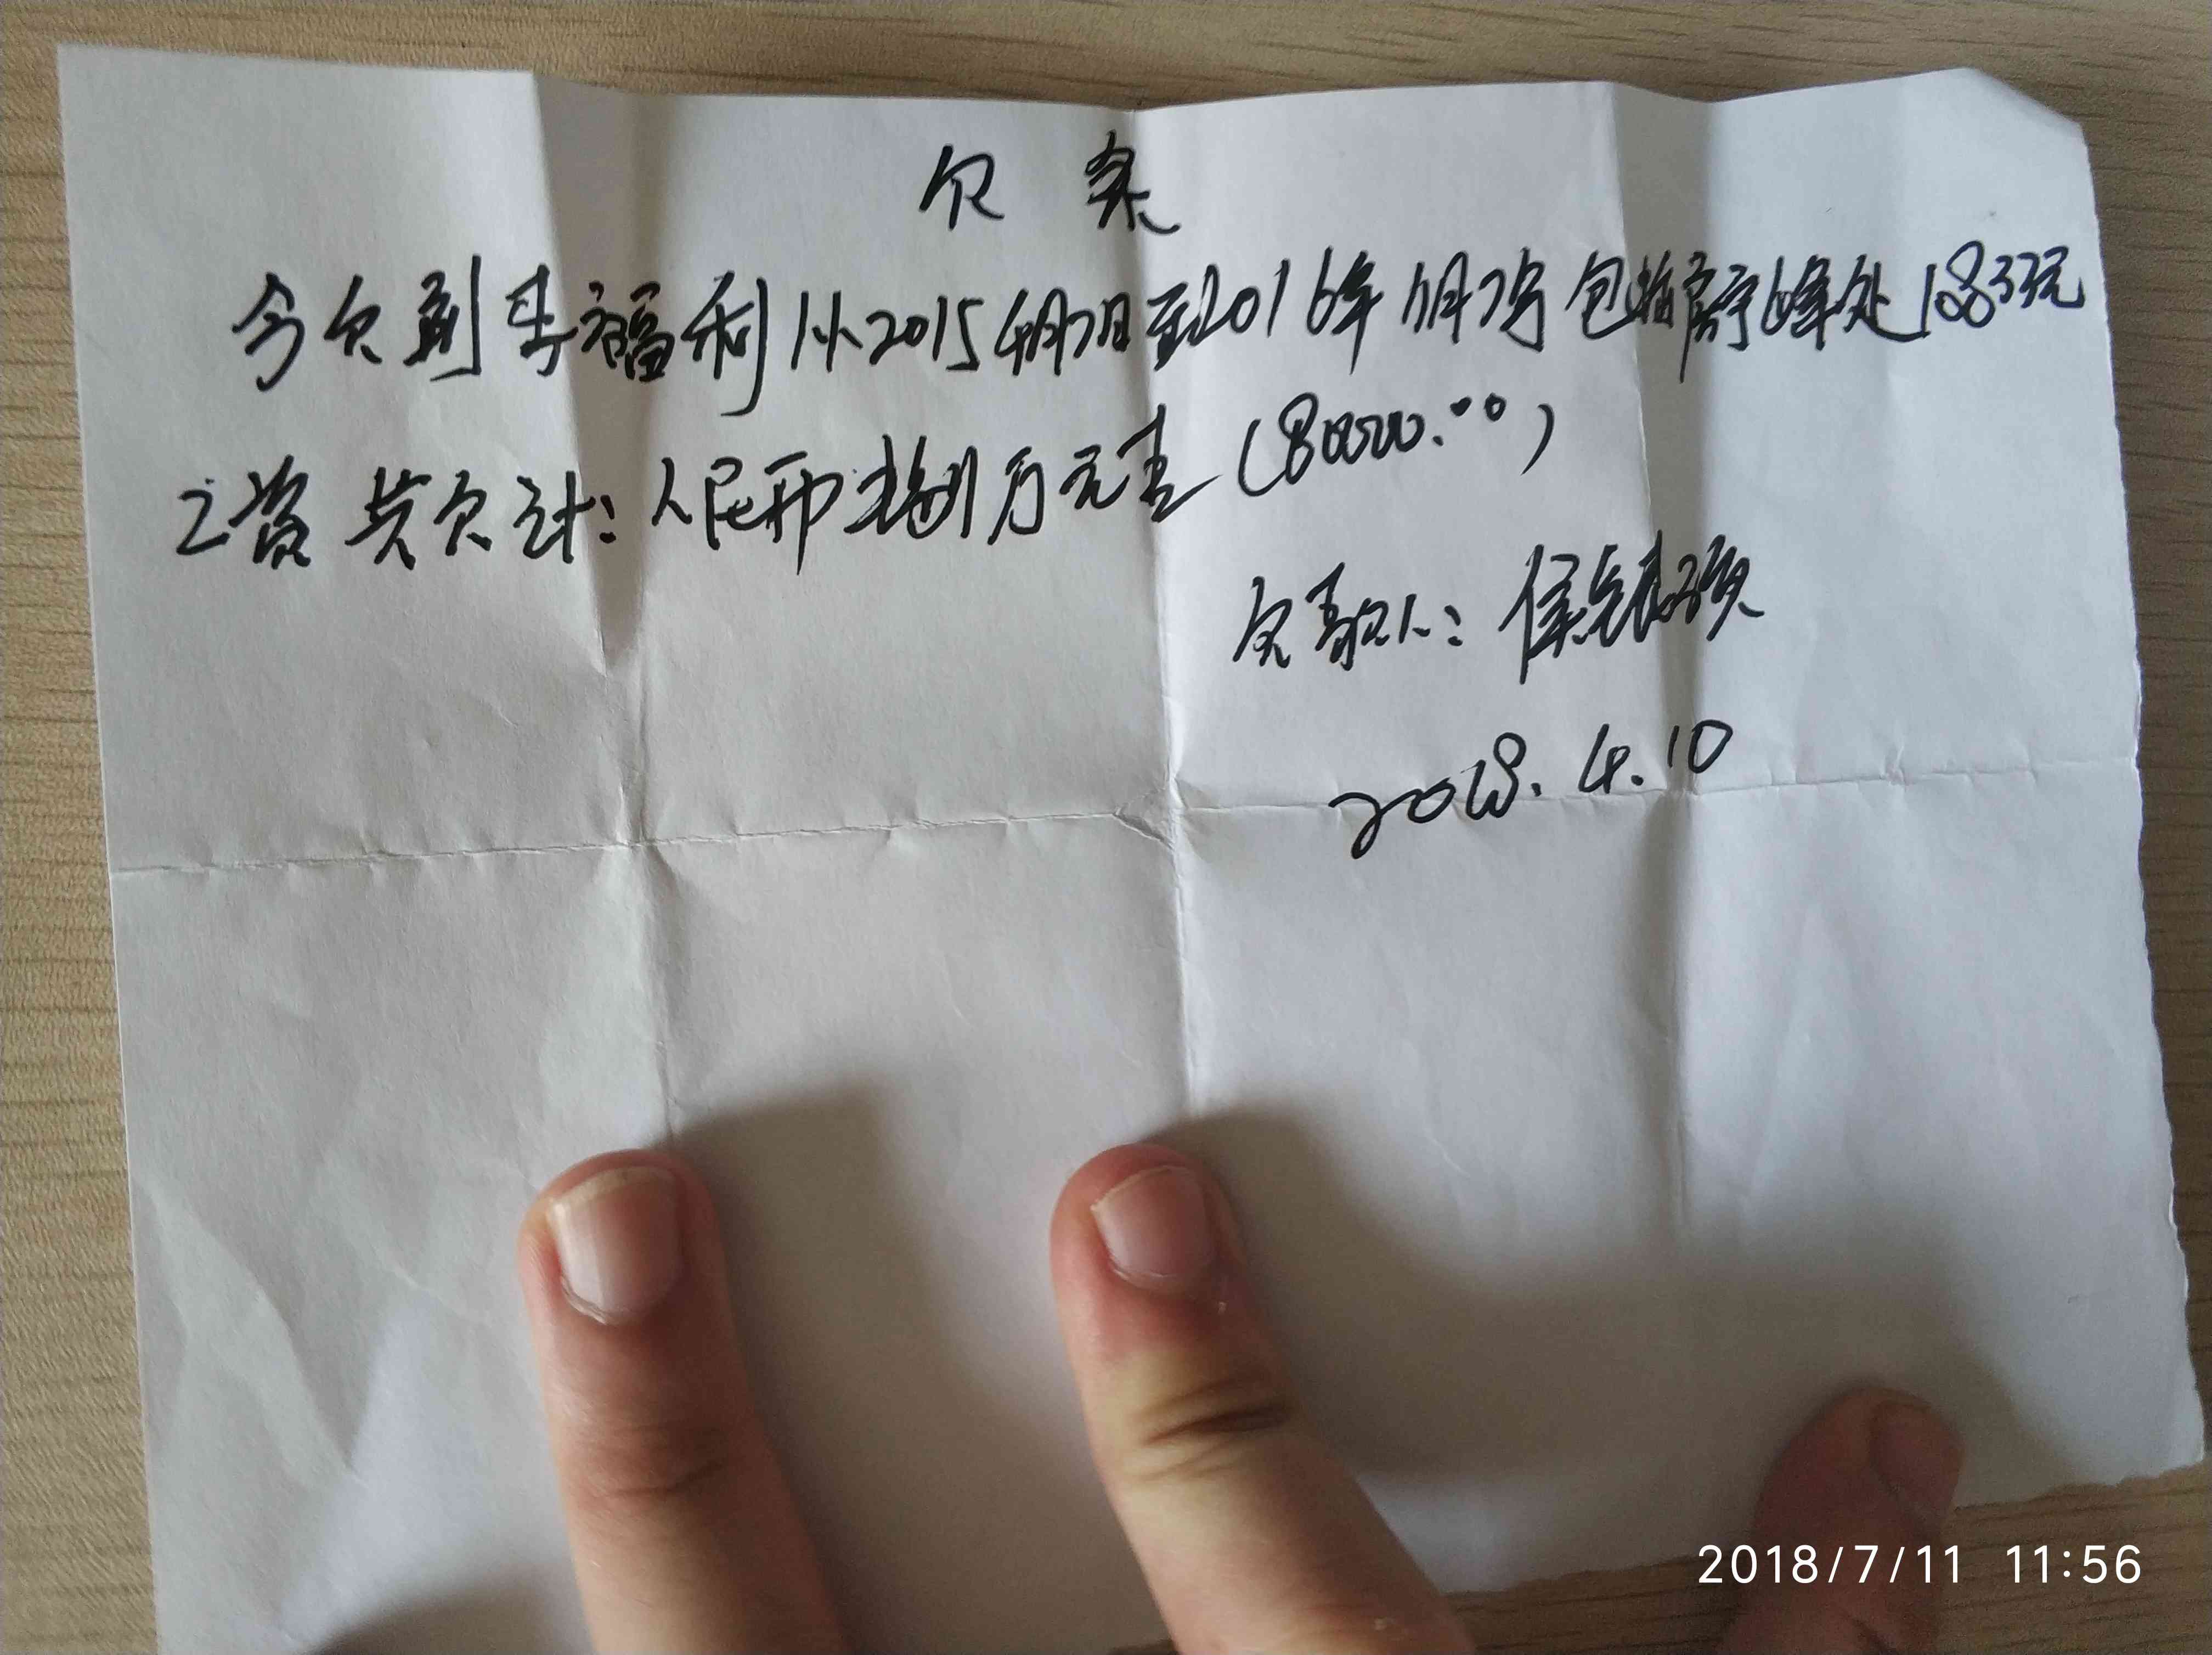 欠 条
今欠到 福利 从2015年4月7日至2016年 月7号 包括 峰处1.8万元
工资 共欠计: 人民币捌万元 (80000.00)
欠款人: 侯
2018. 4. 10
2018/7/11 11:56